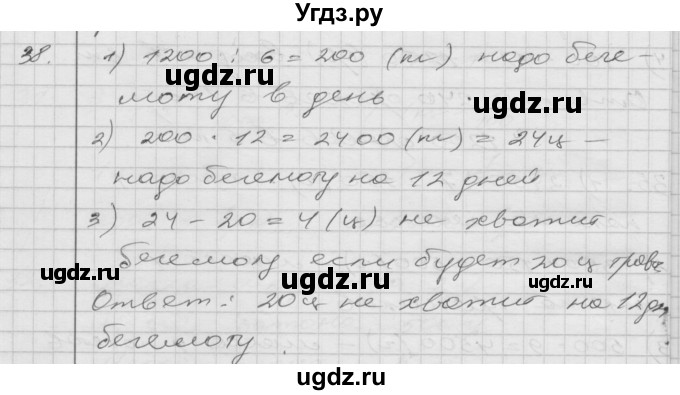 Угдз.ру
38. 1) 1200 : 6 = 200 (т) надо беге-
моту в день
ugdz.ru ugdz.ru
2) 200 · 12 = 2400 (т) = 24ц -
надо бегемоту на 12 дней
ugdz.ru
3) 24 - 20 = 4 (ц) не хватит
бегемоту если будет 20 ц
ugdz.ru ugdz.ru
Ответ: 20 ц не хватит на 12
бегемоту.
ugdz.ru
ugdz.ru